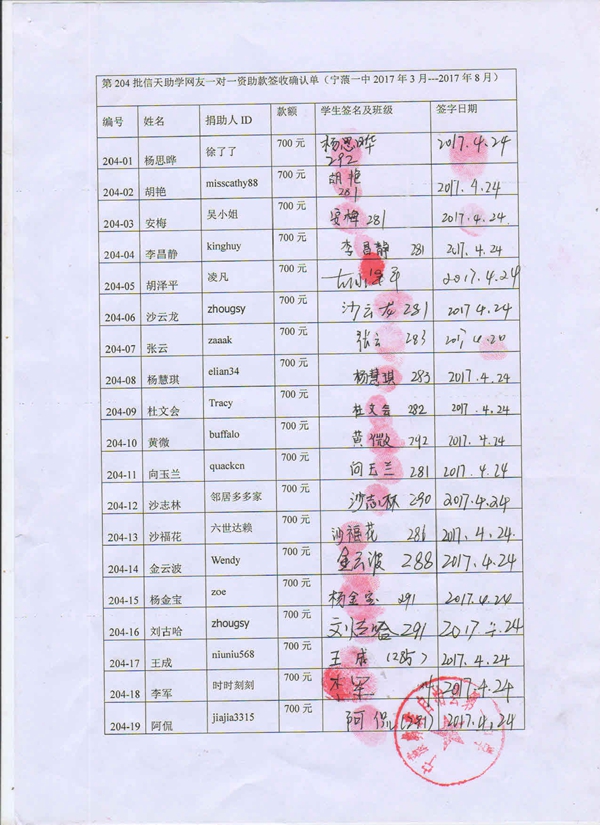 第 204 批信天助学网友一对一资助款签收确认单（宁蒗一中 2017 年 3 月---2017 年 8 月）
编号 姓名 捐助人 ID 款额 学生签名及班级 签字日期
204-01 杨思晔 徐了了 700 元 杨思晔 292 2017.4.24
204-02 胡艳 misscathy88 700 元 胡艳 281 2017.4.24
204-03 安梅 吴小姐 700 元 安梅 281 2017.4.24.
204-04 李昌静 kinghuy 700 元 李昌静 281 2017.4.24
204-05 胡泽平 凌凡 700 元 2017.4.24
204-06 沙云龙 zhougsy 700 元 沙云龙 281 2017.4.24
204-07 张云 zaaak 700 元 张云 283 2017.4.20
204-08 杨慧琪 elian34 700 元 杨慧琪 283 2017.4.24
204-09 杜文会 Tracy 700 元 杜文会 282 2017.4.24
204-10 黄微 buffalo 700 元 黄微 292 2017.4.24
204-11 向玉兰 quackcn 700 元 向玉兰 281 2017.4.24
204-12 沙志林 邻居多多家 700 元 沙志林 290 2017.4.24
204-13 沙福花 六世达赖 700 元 沙福花 286 2017.4.24
204-14 金云波 Wendy 700 元 金云波 288 2017.4.24
204-15 杨金宝 zoe 700 元 杨金宝 291 2017.4.24
204-16 刘古哈 zhougsy 700 元 291 2017. .24
204-17 王成 niuniu568 700 元 王成（285） 2017.4.24
204-18 李军 时时刻刻 700 元 李军 2017.4.24
204-19 阿侃 jiajia3315 700 元 阿侃(291) 2017.4.24